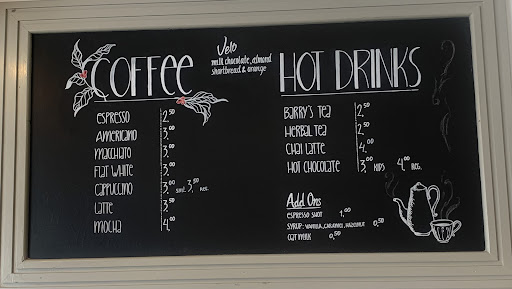 COFFEE
Velo
milk chocolate, almond
shortbread & orange
ESPRESSO 2.50
AMERICANO 3.00
MACCHIATO 3.00
FLAT WHITE 3.00
CAPPUCCINO 3.00 sml 3.50 REG.
LATTE 3.50
MOCHA 4.00
HOT DRINKS
BARRY'S TEA 2.50
HERBAL TEA 2.50
CHAI LATTE 4.00
HOT CHOCOLATE 3.00 KIDS 4.00 REG.
Add Ons
ESPRESSO SHOT 1.00
SYRUP: VANILLA, CARAMEL, HAZELNUT 0.50
OAT MILK 0.50